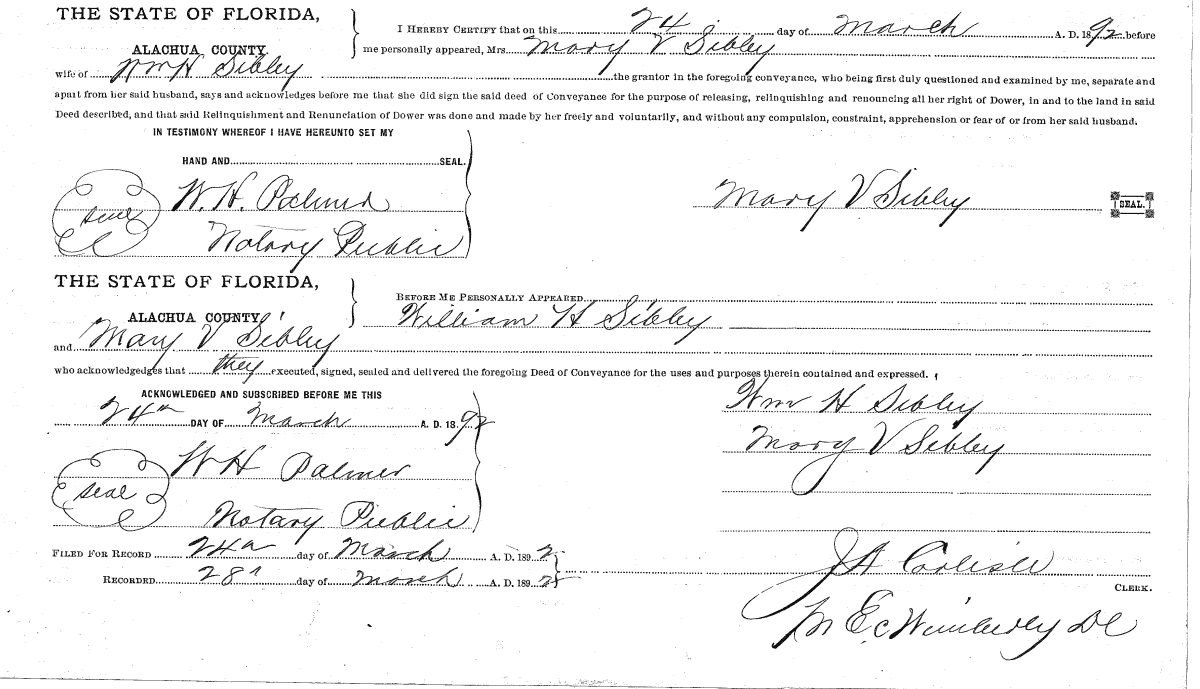 THE STATE OF FLORIDA,
ALACHUA COUNTY.
I HEREBY CERTIFY that on this 24 day of March A. D. 1892 before
me personally appeared, Mrs. Mary V Sibley
wife of Wm H Sibley the grantor in the foregoing conveyance, who being first duly questioned and examined by me, separate and
apart from her said husband, says and acknowledges before me that she did sign the said deed of Conveyance for the purpose of releasing, relinquishing and renouncing all her right of Dower, in and to the land in said
Deed described, and that said Relinquishment and Renunciation of Dower was done and made by her freely and voluntarily, and without any compulsion, constraint, apprehension or fear of or from her said husband.
IN TESTIMONY WHEREOF I HAVE HEREUNTO SET MY
HAND AND SEAL.
seal W. H. Palmer
Notary Public
Mary V Sibley SEAL.
THE STATE OF FLORIDA,
ALACHUA COUNTY
BEFORE ME PERSONALLY APPEARED
William H Sibley
and Mary V Sibley
who acknowledgedges that they executed, signed, sealed and delivered the foregoing Deed of Conveyance for the uses and purposes therein contained and expressed.
ACKNOWLEDGED AND SUBSCRIBED BEFORE ME THIS
24th DAY OF March A. D. 1892
Wm H Sibley
Mary V Sibley
seal W H Palmer
Notary Public
FILED FOR RECORD 24th day of March A. D. 1892
RECORDED 28th day of March A. D. 1892
J A Carlisle
CLERK.
Wimberly DC